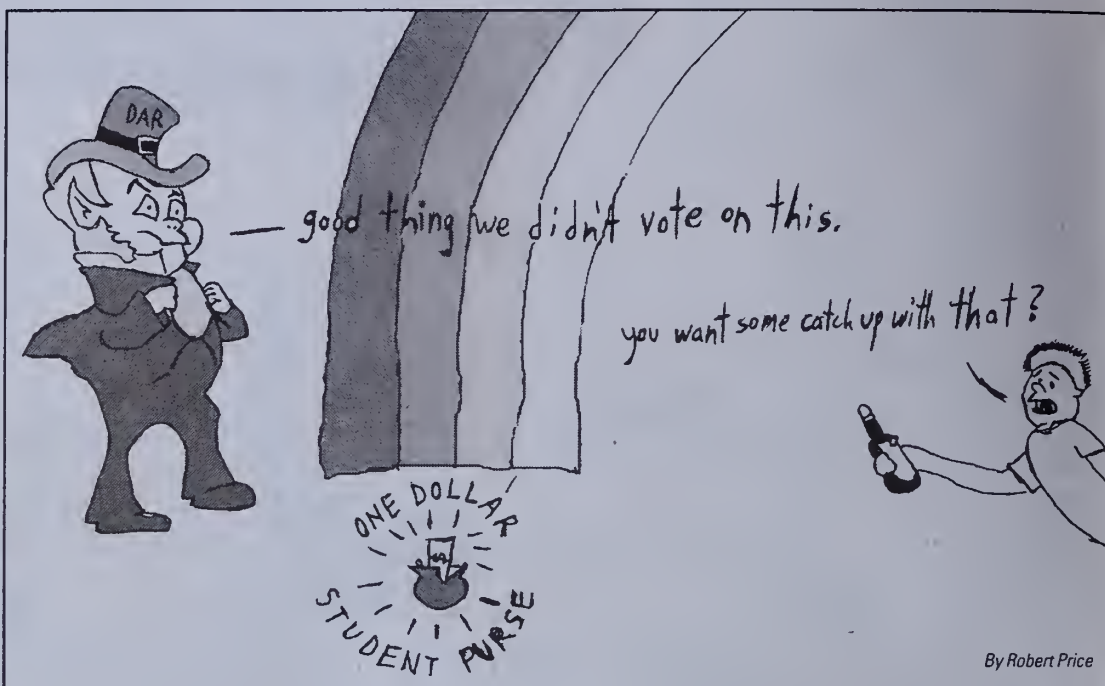 DAR
good thing we didn't vote on this.
you want some catch up with that?
ONE DOLLAR
STUDENT PURSE
By Robert Price